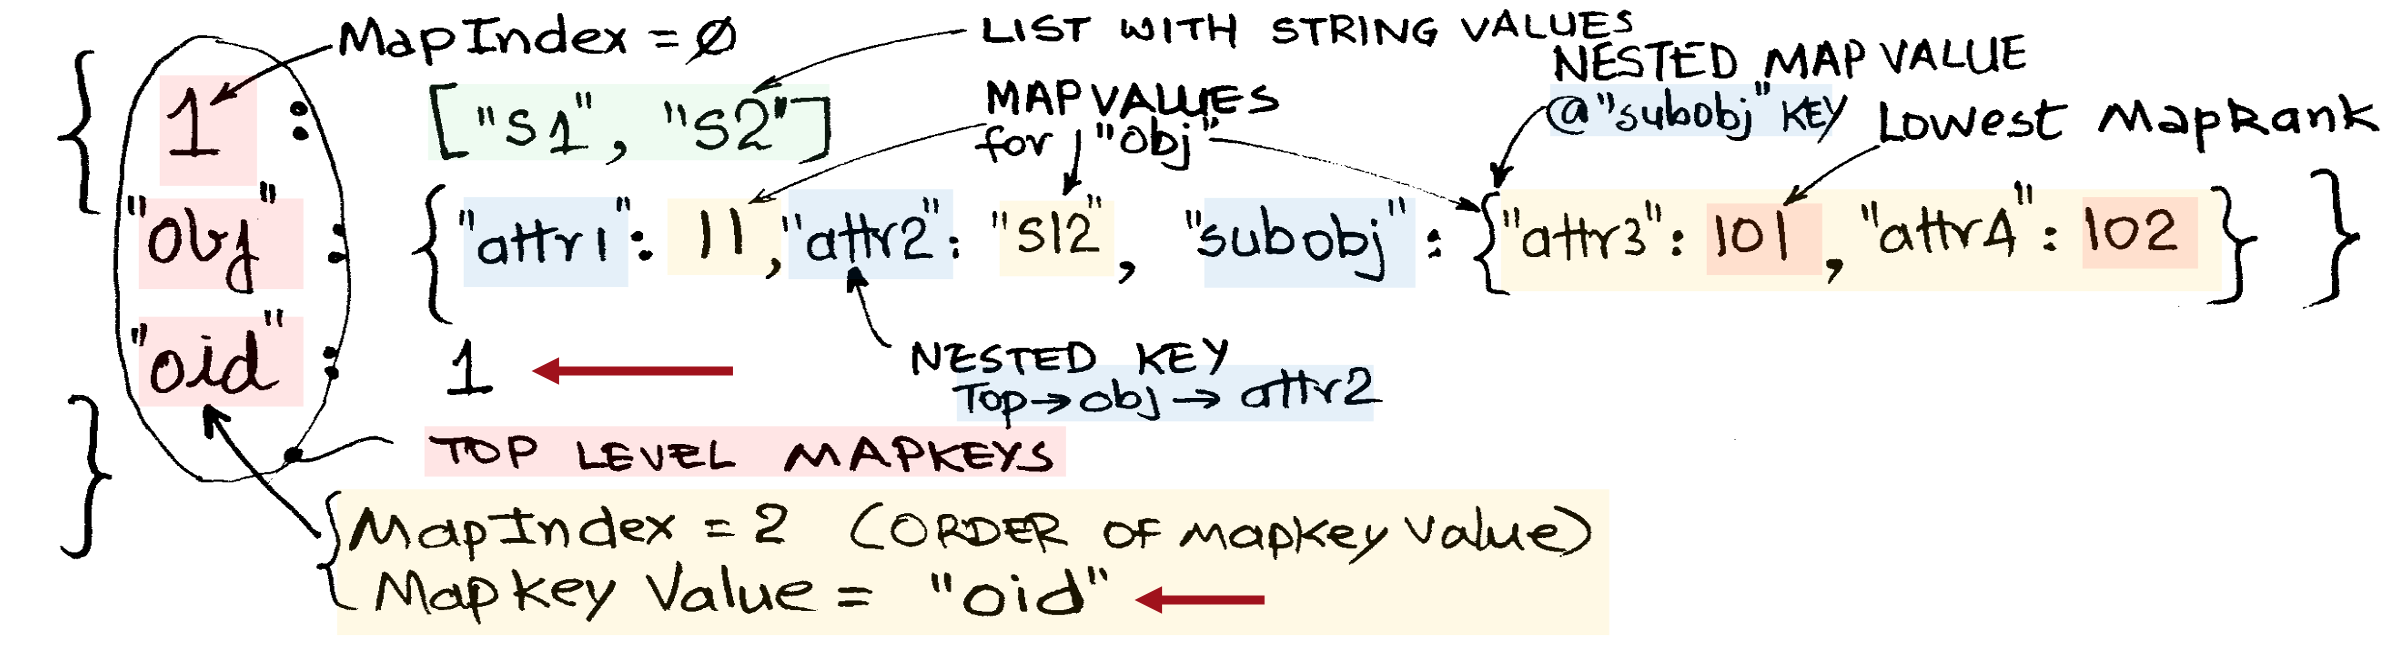 MapIndex = Ø
LIST WITH STRING VALUES
NESTED MAP VALUE
@"subobj" KEY
Lowest MapRank
MAP VALUES
for "Obj"
{ 1 : ["S1", "S2"]
"obj" : {"attr1": 11, "attr2": "S12", "subobj": {"attr3": 101, "attr4": 102} }
"oid" : 1
}
NESTED KEY
Top→obj→attr2
TOP LEVEL MAPKEYS
{ MapIndex = 2 (ORDER OF mapkey value)
Mapkey Value = "oid"